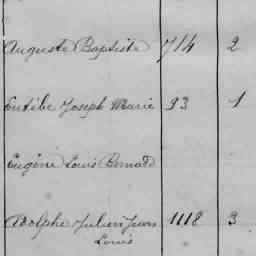 Auguste Baptiste 714 2
Joseph Marie 93 1
Eugène Louis Bernard
Adolphe Julien 1118 3
Louis